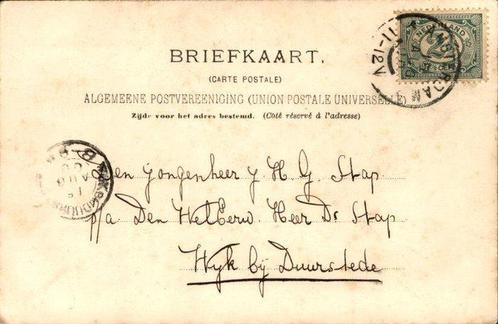 BRIEFKAART.
(CARTE POSTALE)
ALGEMEENE POSTVEREENIGING (UNION POSTALE UNIVERSELLE)
Zijde voor het adres bestemd. (Côté réservé à l'adresse)
NEDERLAND
11-12V
AUG
den jongenheer J. H. G. Stap
p/a Den WelEerw. Heer Ds Stap
Wyk bij Duurstede